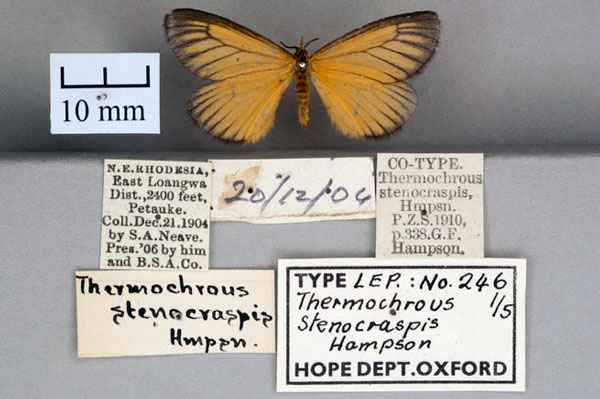 10 mm
N.E.RHODESIA,
East Loangwa
Dist.,2400 feet,
Petauke.
Coll.Dec.21.1904
by S.A. Neave.
Pres.'06 by him
and B.S.A.Co.
20/12/04
CO-TYPE.
Thermochrous
stenocraspis,
Hmpsn.
P.Z.S.1910,
p.338.G.F.
Hampson.
Thermochrous
stenocraspis
Hmpsn.
TYPE LEP.: No. 246
Thermochrous 1/5
Stenocraspis
Hampson
HOPE DEPT. OXFORD